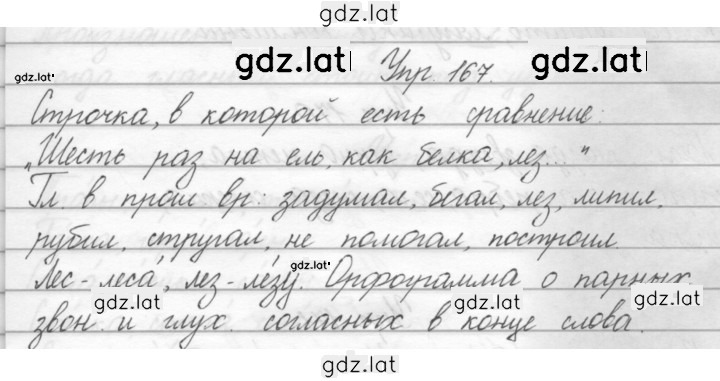 gdz.lat
gdz.lat gdz.lat Упр. 167. gdz.lat
Строчка, в которой есть сравнение:
„Шесть раз на ель, как белка, лез..."
Гл. в прош вр: задумал, бегал, лез, липил,
рубил, стругал, не помогал, построил.
Лес - леса́, лез - ле́зу. gdz.lat Орфограмма о парных
gdz.lat gdz.lat gdz.lat
звон. и глух. согласных в конце слова.
gdz.lat